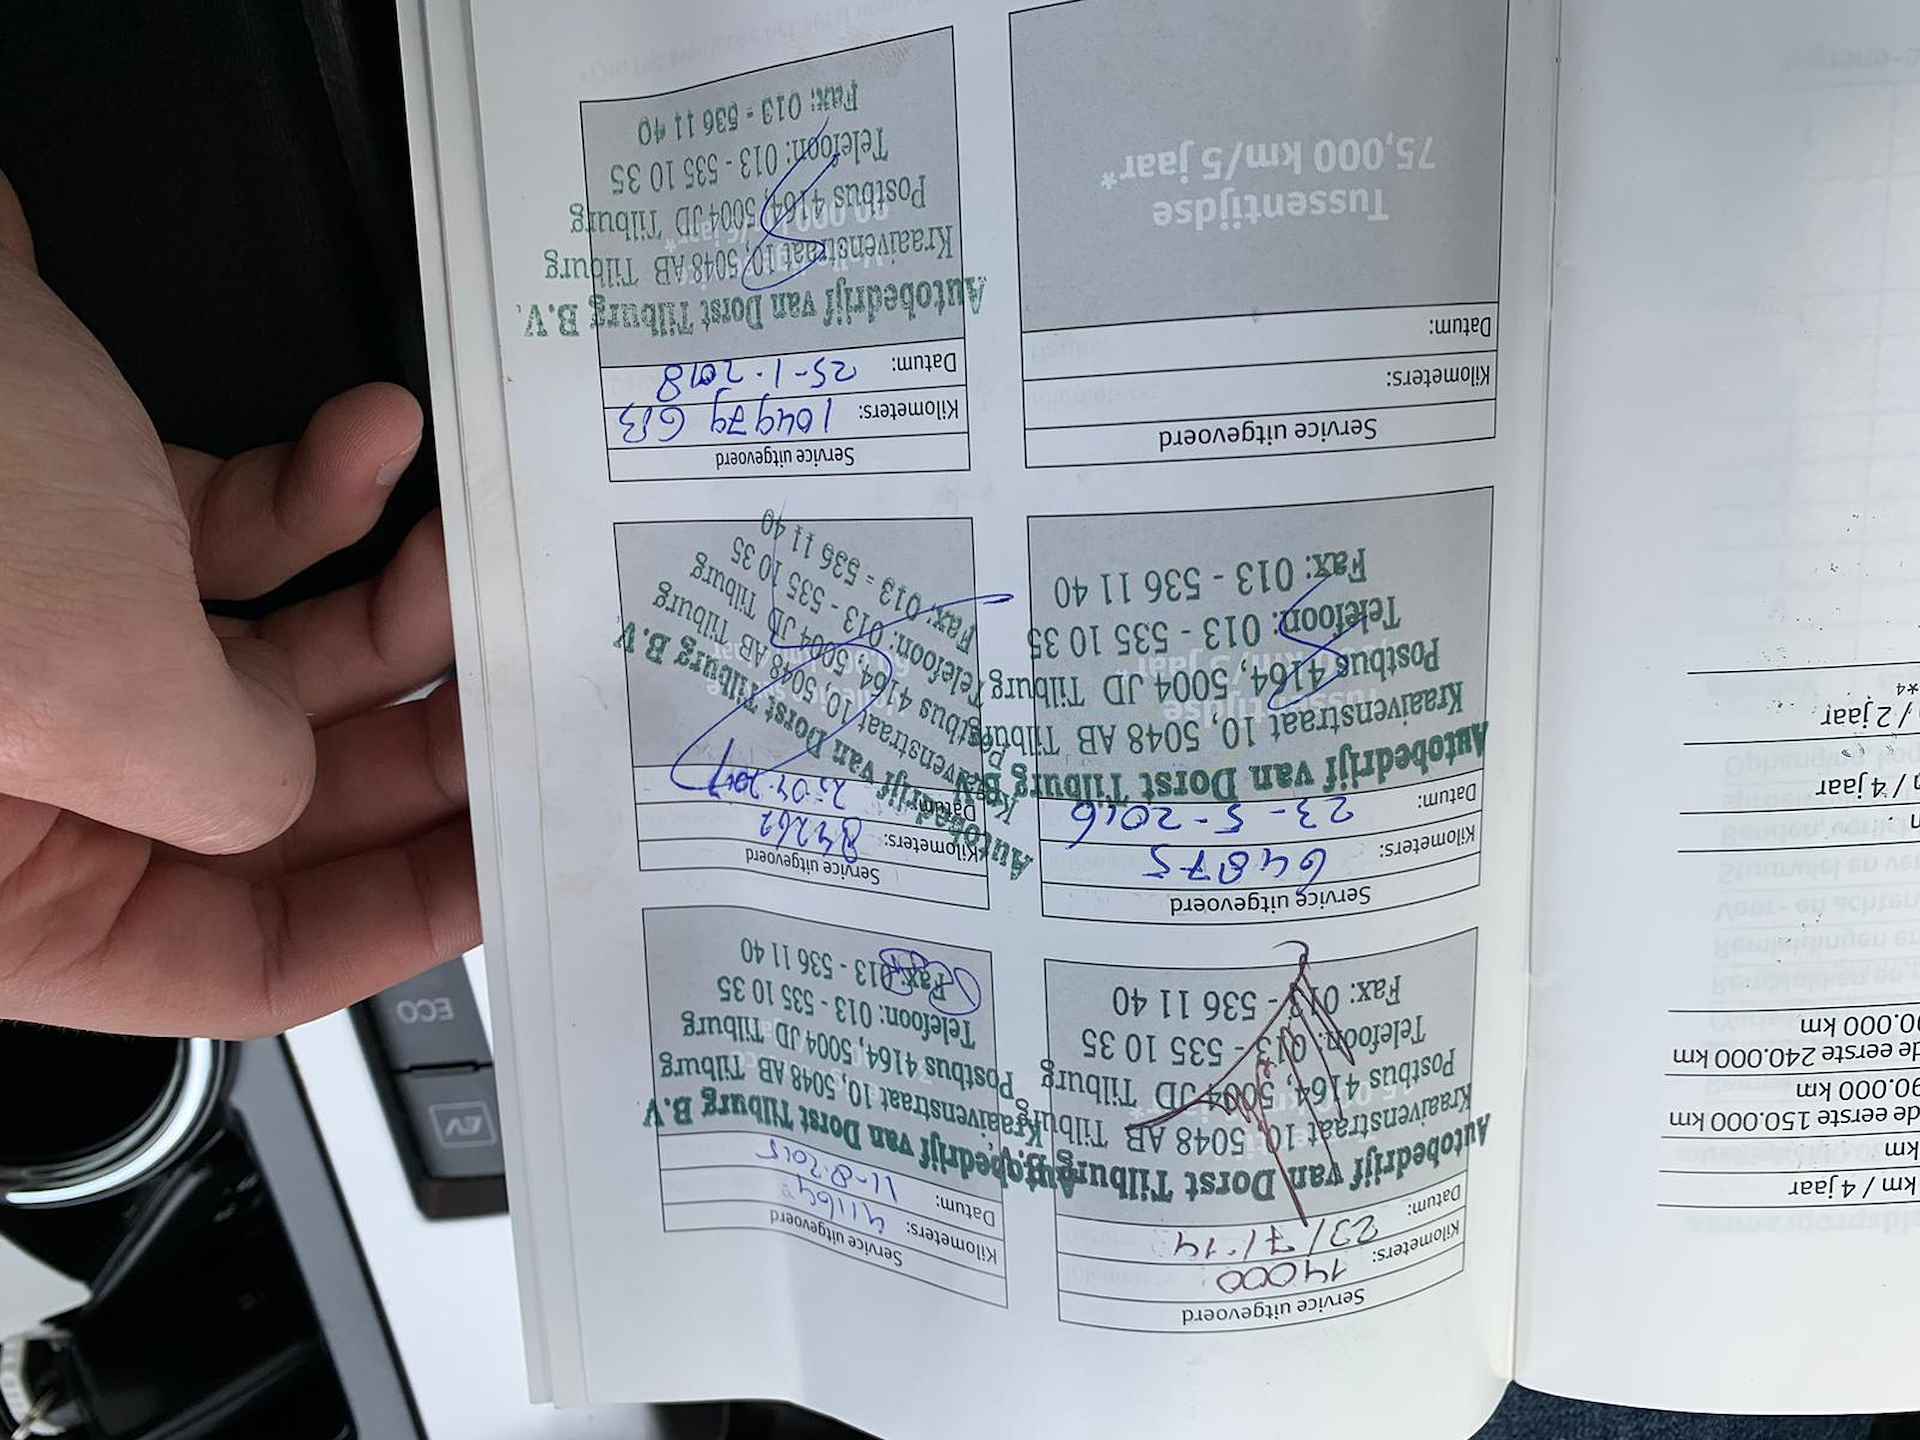 Service uitgevoerd
Kilometers: 14000
Datum: 23/7/14
Autobedrijf van Dorst Tilburg B.V.
Kraaivenstraat 10, 5048 AB Tilburg
Postbus 4164, 5004 JD Tilburg
Telefoon: 013 - 535 10 35
Fax: 013 - 536 11 40
Service uitgevoerd
Kilometers: 41164
Datum: 11-8-2015
Autobedrijf van Dorst Tilburg B.V.
Kraaivenstraat 10, 5048 AB Tilburg
Postbus 4164, 5004 JD Tilburg
Telefoon: 013 - 535 10 35
Fax: 013 - 536 11 40
Service uitgevoerd
Kilometers: 64875
Datum: 23-5-2016
Autobedrijf van Dorst Tilburg B.V.
Kraaivenstraat 10, 5048 AB Tilburg
Postbus 4164, 5004 JD Tilburg
Telefoon: 013 - 535 10 35
Fax: 013 - 536 11 40
Service uitgevoerd
Kilometers:
Datum:
Autobedrijf van Dorst Tilburg B.V.
Kraaivenstraat 10, 5048 AB Tilburg
Postbus 4164, 5004 JD Tilburg
Telefoon: 013 - 535 10 35
Fax: 013 - 536 11 40
Service uitgevoerd
Kilometers:
Datum:
Tussentijdse
75,000 km/5 jaar*
Service uitgevoerd
Kilometers: 104979 GB
Datum: 25-1-2018
Autobedrijf van Dorst Tilburg B.V.
Kraaivenstraat 10, 5048 AB Tilburg
Postbus 4164, 5004 JD Tilburg
Telefoon: 013 - 535 10 35
Fax: 013 - 536 11 40
km / 4 jaar
km
de eerste 150.000 km
90.000 km
de eerste 240.000 km
00.000 km
/ 4 jaar
/ 2 jaar
*4
ECO
EV